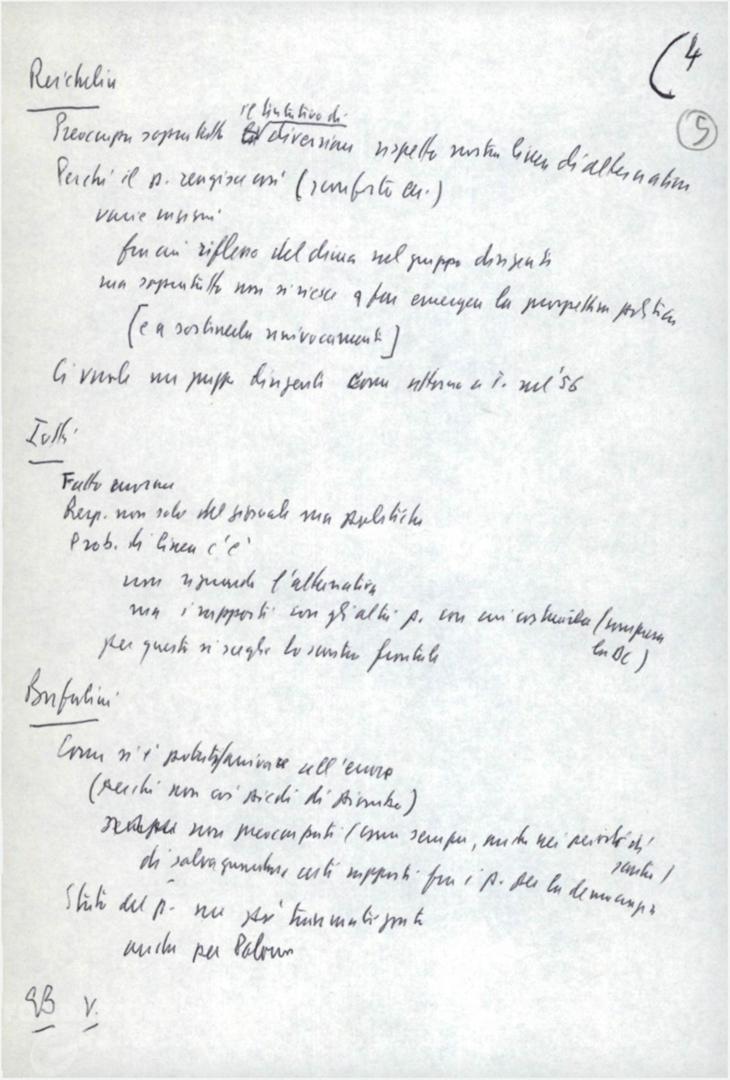 (4
5
Reichlin
il tentativo di
Preoccupa soprattutto diversione rispetto nostra linea di alternativa
Perché il p. reagisce così (sconforto ecc.)
varie ragioni
fra cui riflesso del clima nel gruppo dirigente
ma soprattutto non si riesce a far emergere la prospettiva politica
[e a sostenerla univocamente]
Ci vuole un gruppo dirigente come attorno a T. nel '56
Iotti
Fatto enorme
Resp. non solo del giornale ma politiche
Prob. di linea c'è
non riguarda l'alternativa
ma i rapporti con gli altri p. con cui costruirla (compresa
la DC)
per questi si sceglie lo scontro frontale
Bufalini
Come si è potuto arrivare all'errore
(perché non così piedi di piombo)
non preoccuparsi (come sempre, anche nei periodi di
scontro)
di salvaguardare certi rapporti fra i p. per la democrazia
Stato del p. un po' traumatizzato
anche per Polonia
EB V.